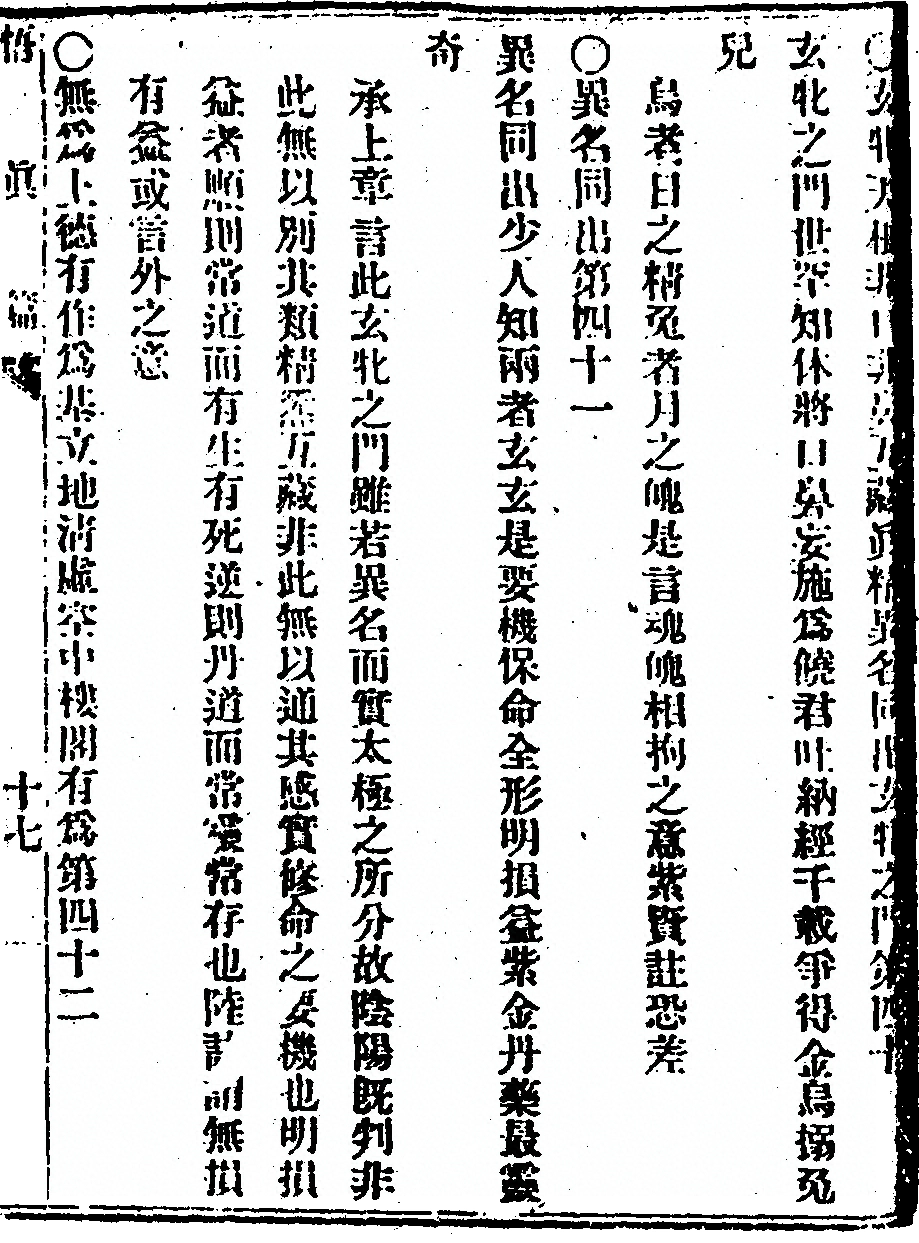 ○玄牝天根非口鼻互藏眞精異名同出玄牝之門第四十
玄牝之門世罕知休將口鼻妄施爲饒君吐納經千載爭得金烏搦兎
兒
烏者日之精兎者月之魄是言魂魄相拘之意紫賢註恐差
○異名同出第四十一
異名同出少人知兩者玄玄是要機保命全形明損益紫金丹藥最靈
奇
承上章言此玄牝之門雖若異名而實太極之所分故陰陽旣判非
此無以別其類精炁互藏非此無以通其感實修命之要機也明損
益者順則常道而有生有死逆則丹道而常靈常存也陸註謂無損
有益或當外之意
○無爲上德有作爲基立地淸虛空中樓閣有爲第四十二
悟眞篇 十七